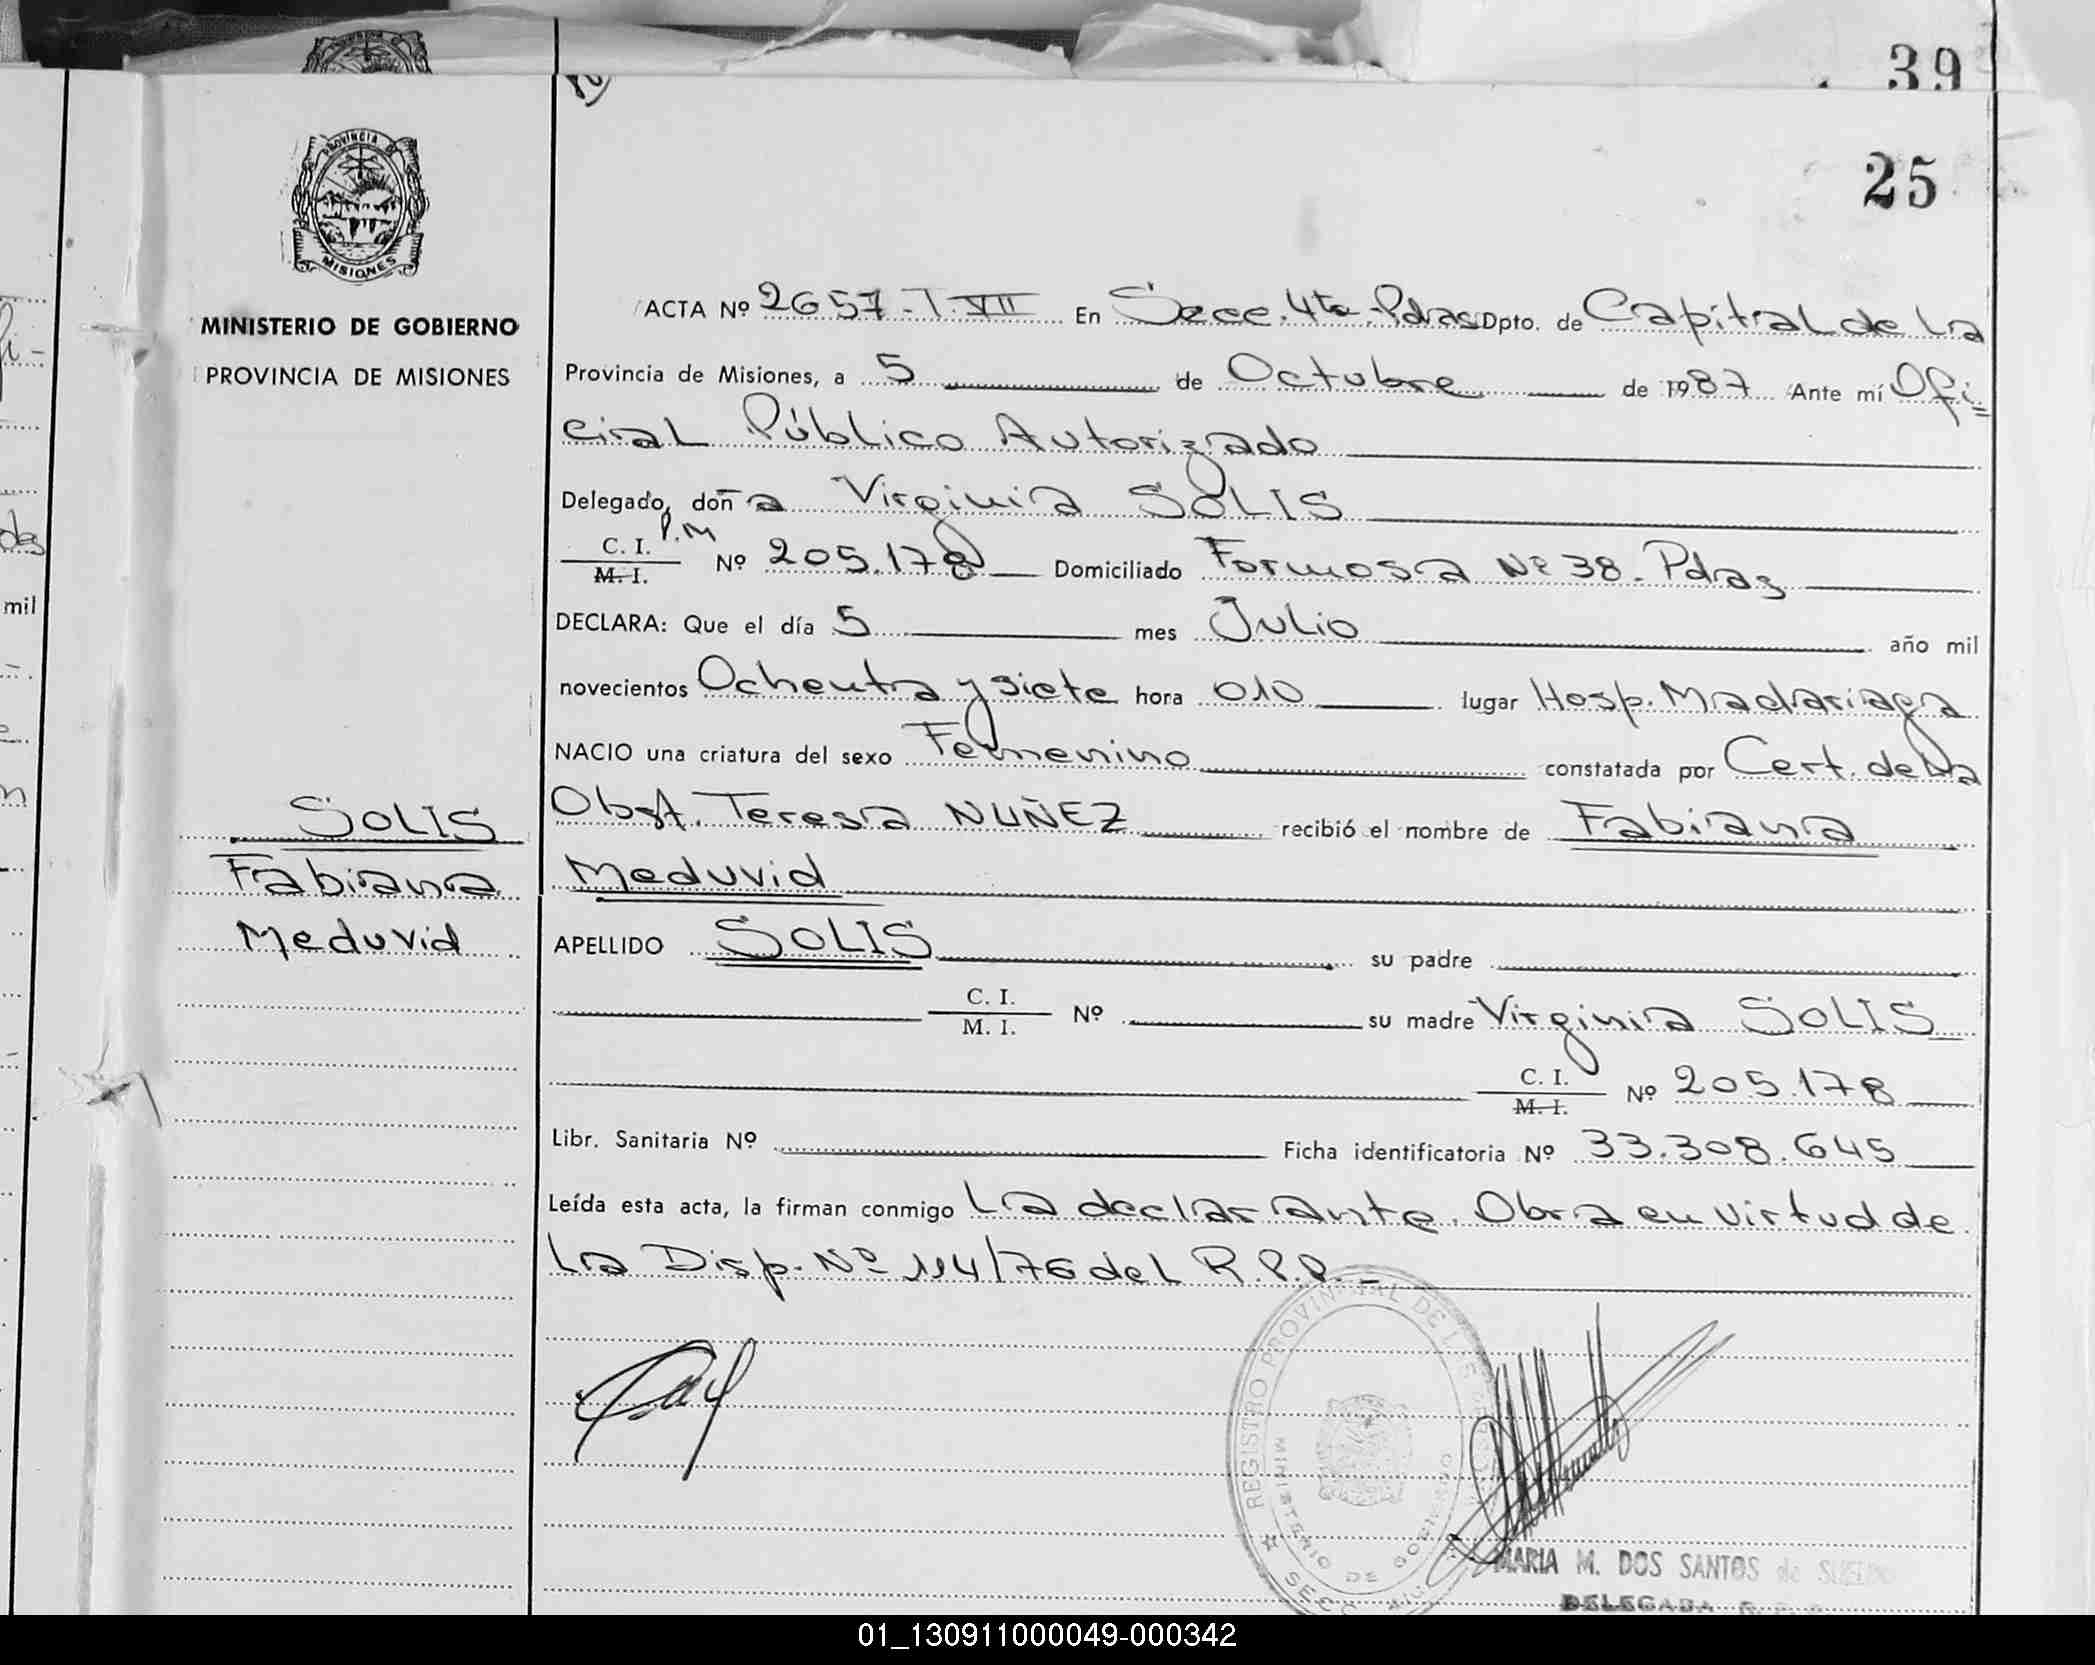 39
25
PROVINCIA DE
MISIONES
MINISTERIO DE GOBIERNO
PROVINCIA DE MISIONES
ACTA Nº 2657-T.VII En Secc. 4ta. Pdas Dpto. de Capital de La
Provincia de Misiones, a 5 de Octubre de 1987 Ante mí Ofi-
cial Público Autorizado
Delegado, doña Virginia SOLIS
P.M
C. I.
M. I. Nº 205.178 Domiciliado Formosa Nº 38. Pdas
DECLARA: Que el día 5 mes Julio año mil
novecientos Ochenta y siete hora 010 lugar Hosp. Madariaga
NACIO una criatura del sexo Femenino constatada por Cert. de La
Obst. Teresa NUÑEZ recibió el nombre de Fabiana
Meduvid
SOLIS
Fabiana
Meduvid
APELLIDO SOLIS su padre
C. I.
M. I. Nº su madre Virginia SOLIS
C. I.
M. I. Nº 205.178
Libr. Sanitaria Nº Ficha identificatoria Nº 33.308.645
Leída esta acta, la firman conmigo La declarante. Obra en virtud de
La Disp. Nº 114/76 del R.P.P.-
REGISTRO PROVINCIAL DE L
MINISTERIO DE GOBIERNO
SECC.
MARIA M. DOS SANTOS de
DELEGADA
01_130911000049-000342
mil